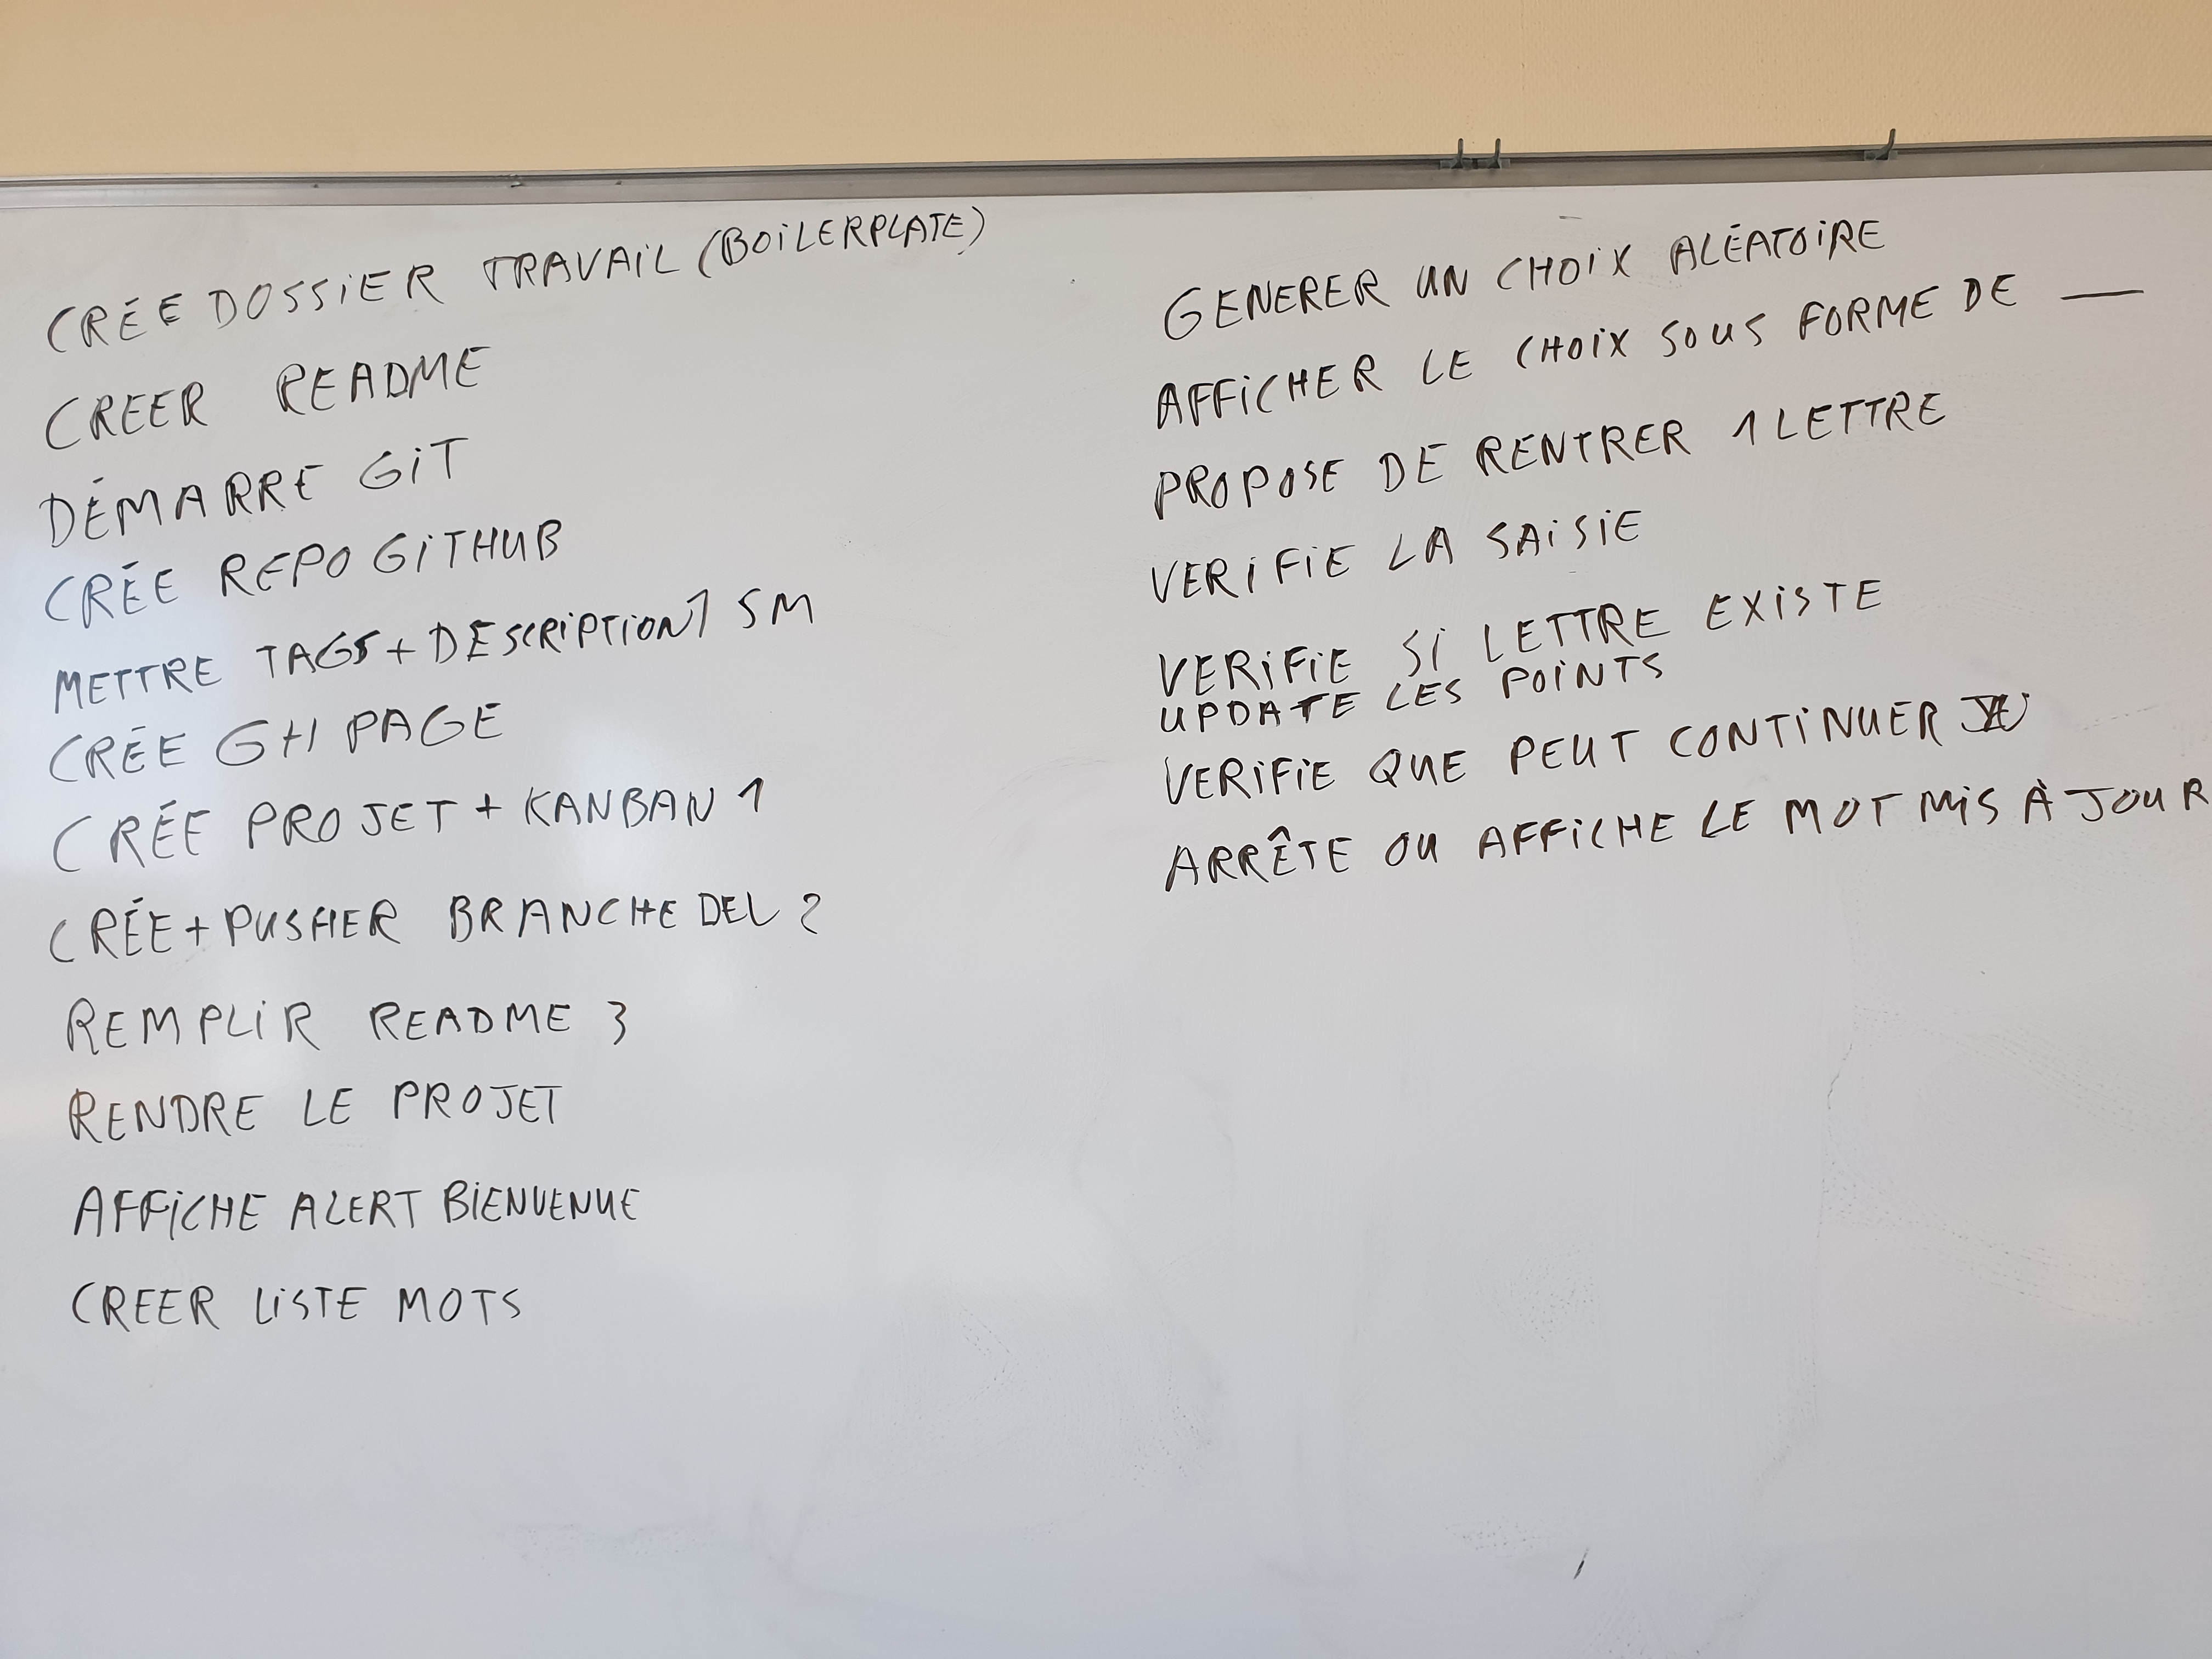 CRÉE DOSSIER TRAVAIL (BOILERPLATE)
CREER README
DÉMARRE GIT
CRÉE REPO GITHUB
METTRE TAGS + DESCRIPTION 1 SM
CRÉE GH PAGE
CRÉE PROJET + KANBAN 1
CRÉE + PUSHER BRANCHE DEL 2
REMPLIR README 3
RENDRE LE PROJET
AFFICHE ALERT BIENVENUE
CREER LISTE MOTS
GENERER UN CHOIX ALÉATOIRE
AFFICHER LE CHOIX SOUS FORME DE __
PROPOSE DE RENTRER 1 LETTRE
VERIFIE LA SAISIE
VERIFIE SI LETTRE EXISTE
UPDATE LES POINTS
VERIFIE QUE PEUT CONTINUER
ARRÊTE OU AFFICHE LE MOT MIS À JOUR